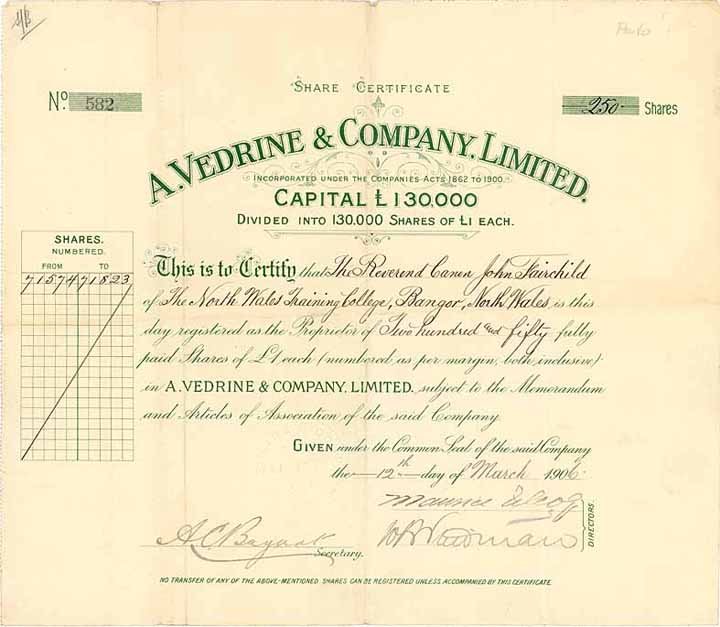 S/B
SHARE CERTIFICATE
No. 582
250 Shares
A. VEDRINE & COMPANY, LIMITED.
INCORPORATED UNDER THE COMPANIES ACTS 1862 TO 1900.
CAPITAL £130,000
DIVIDED INTO 130,000 SHARES OF £1 EACH.
SHARES.
NUMBERED.
FROM TO
71574 71823
This is to Certify that The Reverend Canon John Fairchild
of The North Wales Training College, Bangor, North Wales, is this
day registered as the Proprietor of Two hundred and fifty fully
paid Shares of £1 each (numbered, as per margin, both inclusive)
in A. VEDRINE & COMPANY, LIMITED, subject to the Memorandum
and Articles of Association of the said Company
GIVEN under the Common Seal of the said Company
the 12th day of March 1906.
Maurice
DIRECTORS.
Secretary.
NO TRANSFER OF ANY OF THE ABOVE-MENTIONED SHARES CAN BE REGISTERED UNLESS ACCOMPANIED BY THIS CERTIFICATE